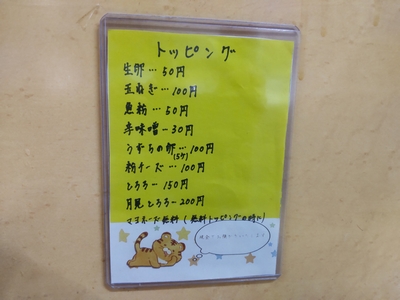 トッピング
生卵…50円
玉ねぎ…100円
魚粉…50円
辛味噌…30円
うずらの卵…100円
(5ケ)
粉チーズ…100円
とろろ…150円
月見とろろ…200円
マヨネーズ無料(有料トッピングの時に)